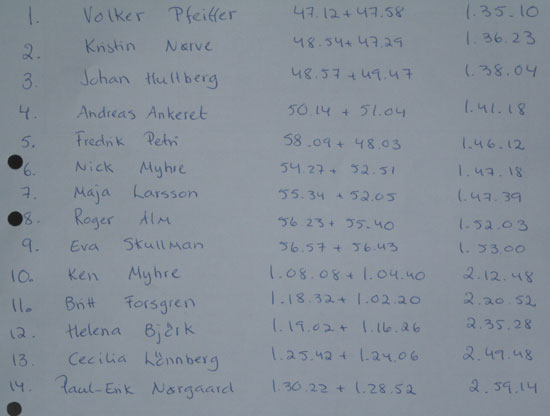 1. Volker Pfeiffer 47.12 + 47.58 1.35.10
2. Kristin Nørve 48.54 + 47.29 1.36.23
3. Johan Hullberg 48.57 + 49.47 1.38.04
4. Andreas Ankeret 50.14 + 51.04 1.41.18
5. Fredrik Petri 58.09 + 48.03 1.46.12
6. Nick Myhre 54.27 + 52.51 1.47.18
7. Maja Larsson 55.34 + 52.05 1.47.39
8. Roger Alm 56.23 + 55.40 1.52.03
9. Eva Skullman 56.57 + 56.43 1.53.00
10. Ken Myhre 1.08.08 + 1.04.40 2.12.48
11. Britt Forsgren 1.18.32 + 1.02.20 2.20.52
12. Helena Björk 1.19.02 + 1.16.26 2.35.28
13. Cecilia Lönnberg 1.25.42 + 1.24.06 2.49.48
14. Paul-Erik Nørgaard 1.30.22 + 1.28.52 2.59.14